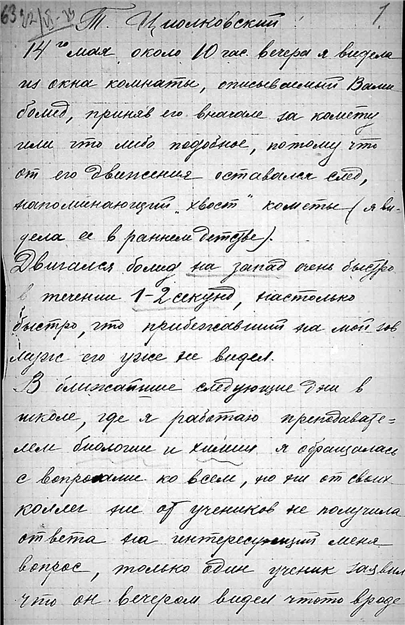 63 22/VI-34 1
Т. Циолковский
14го мая, около 10 час. вечера я видела
из окна комнаты, описываемый Вами
болид, приняв его вначале за комету
или что либо подобное, потому что
от его движения оставался след,
напоминающий „хвост" кометы (я ви-
дела ее в раннем детстве).
Двигался болид на запад очень быстро
в течении 1-2 секунд, настолько
быстро, что прибежавший на мой зов
муж его уже не видел.
В ближайшие следующие дни в
школе, где я работаю преподавате-
лем биологии и химии я обращалась
с вопросами ко всем, но ни от своих
коллег ни от учеников не получила
ответа на интересующий меня
вопрос, только один ученик заявил
что он вечером видел чтото вроде